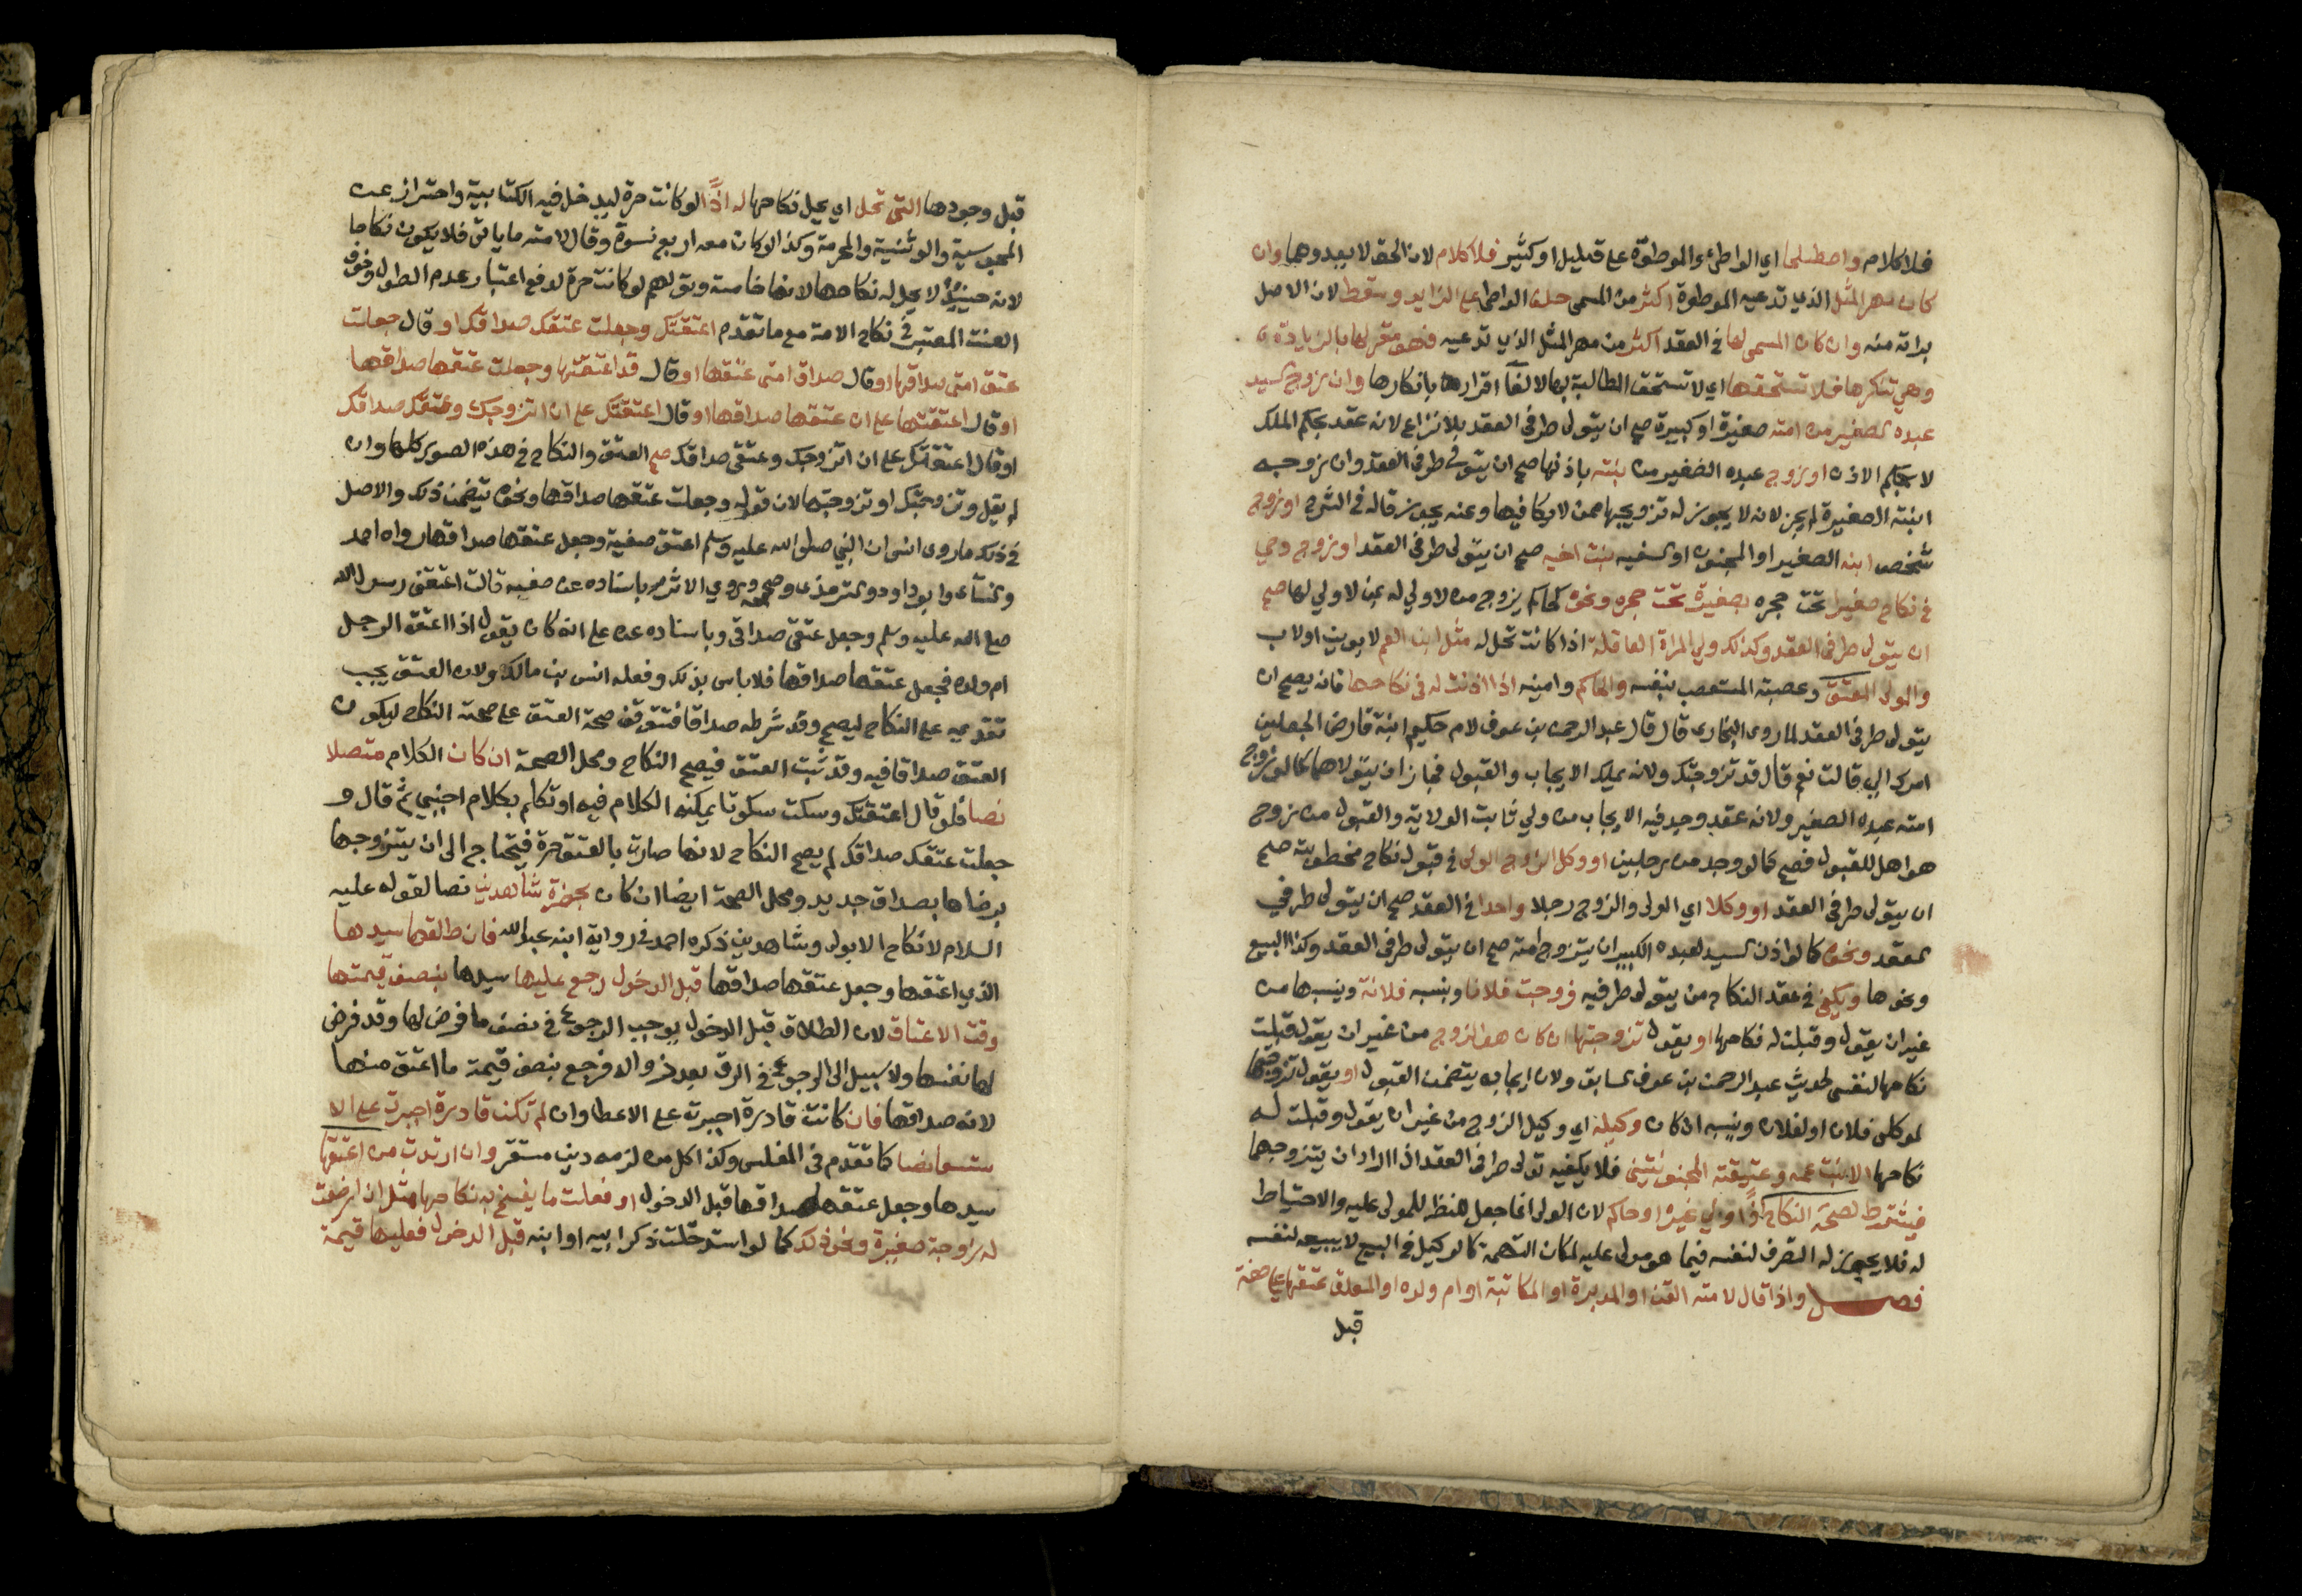 فلا كلام واصطلحا اي الواطئ والموطوة على قليل او كثير فلا كلام لان الحق لا يعدوهما وان
كان مهر المثل الذي تدعيه الموطوة اكثر من المسمى حلف الواطئ على الزايد وسقط لان الاصل
براته منه وان كان المسمى لها في العقد اكثر من مهر المثل الذي تدعيه فهو مقر لها بالزيادة
وهي تنكرها فلا تستحقها اي لا تستحق المطالبة بها لالغآ اقراره بانكارها وان زوج السيد
عبده الصغير من امته صغيرة او كبيرة صح ان يتولى طرفي العقد بلا نزاع لانه عقد بحكم الملك
لا بحكم الاذن او زوج عبده الصغير من بنته باذنها صح ان يتولى طرفي العقد وان زوجه
ابنته الصغيرة لم يجز لانه لا يجوز له تزويجها ممن لا يكافيها وعنه يجوز قاله في الشرح او زوج
شخص ابنه الصغير او المجنون او السفيه بنت اخيه صح ان يتولى طرفي العقد او زوج وصي
في نكاح صغيرا تحت حجره بصغيرة تحت حجره ونحوه كحاكم يزوج من لا ولي له بمن لا ولي لها صح
ان يتولى طرفي العقد وكذلك ولي المراة العاقلة اذا كانت تحل له مثل ابن العم لابوين او لاب
والمولى المعتق وعصبته المتعصب بنفسه والحاكم وامينه اذا اذنت له في نكاحها فانه يصح ان
يتولى طرفي العقد لما روى البخاري قال قال عبد الرحمن بن عوف لام حكيم ابنة قارض اتجعلين
امرك الي قالت نعم قال قد تزوجتك ولانه يملك الايجاب والقبول فجاز ان يتولاهما كما لو زوج
امته عبده الصغير ولانه عقد وجد فيه الايجاب من ولي ثابت الولاية والقبول من زوج
هو اهل للقبول فصح كما لو وجد من رجلين او وكل الزوج الولي في قبول نكاح مخطوبته صح
ان يتولى طرفي العقد او وكلا اي الولي والزوج رجلا واحدا في العقد صح ان يتولى طرفي
العقد ونحوه كما لو اذن السيد لعبده الكبير ان يتزوج امته صح ان يتولى طرفي العقد وكذا البيع
ونحوها ويكفي في عقد النكاح من يتولى طرفيه زوجت فلانا وينسبه فلانة وينسبها من
غير ان يقول وقبلت له نكاحها او يقول تزوجتها ان كان هو الزوج من غير ان يقول قبلت
نكاحها لنفسي لحديث عبد الرحمن بن عوف السابق ولان ايجابه يتضمن القبول او يقول تزوجتها
لموكلي فلان او لفلان وينسبه ان كان وكيله اي وكيل الزوج من غير ان يقول وقبلت له
نكاحها الا بنت عمه وعتيقته المجنونتين فلا يكفيه تولى طرفي العقد اذا اراد ان يتزوجهما
فيشترط لصحة النكاح ولي غيره او حاكم لان الولي انما جعل للنظر للمولى عليه والاحتياط
له فلا يجوز له التصرف لنفسه فيما هو مولى عليه لمكان التهمة كالوكيل في البيع لا يبيعه لنفسه
فصل واذا قال لامته القن او المدبرة او المكاتبة او ام ولده او المعلق عتقها على صفة
قبل
قبل وجودها التي تحل اي يحل نكاحها له اذًا لو كانت حرة ليدخل فيه الكتابية واحترز عن
المجوسية والوثنية والمحرمة وكذا لو كان معه اربع نسوة وقال لامته ما ياتي فلا يكون نكاحا
لانه حينئذ لا يحل له نكاحها لانها خامسة وقولهم لو كانت حرة لدفع اعتبار عدم الطول وخوف
العنت المعتبر في نكاح الامة مع ما تقدم اعتقتك وجعلت عتقك صداقك او قال جعلت
عتق امتي صداقها او قال صداق امتي عتقها او قال قد اعتقتها وجعلت عتقها صداقها
او قال اعتقتها على ان عتقها صداقها او قال اعتقتك على ان اتزوجك وعتقك صداقك
او قال اعتقتك على ان اتزوجك وعتقي صداقك صح العتق والنكاح في هذه الصور كلها وان
لم يقل وتزوجتك او تزوجتها لان قوله وجعلت عتقها صداقها ونحوه يتضمن ذلك والاصل
في ذلك ما روى انس ان النبي صلى الله عليه وسلم اعتق صفية وجعل عتقها صداقها رواه احمد
والنسآي وابو داود والترمذي وصححه وروي الاثرم باسناده عن صفية قالت اعتقني رسول الله
صلى الله عليه وسلم وجعل عتقي صداقي وباسناده عن علي انه كان يقول اذا اعتق الرجل
ام ولده فجعل عتقها صداقها فلا باس بذلك وفعله انس بن مالك ولان العتق يجب
تقديمه على النكاح ليصح وقد شرطه صداقا فتتوقف صحة العتق على صحة النكاح ليكون
العتق صداقا فيه وقد ثبت العتق فيصح النكاح ومحل الصحة ان كان الكلام متصلا
نصا فلو قال اعتقتك وسكت سكوتا يمكنه الكلام فيه او تكلم بكلام اجنبي ثم قال و
جعلت عتقك صداقك لم يصح النكاح لانها صارت بالعتق حرة فيحتاج الى ان يتزوجها
برضاها بصداق جديد ومحل الصحة ايضا ان كان بحضرة شاهدين نصا لقوله عليه
السلام لا نكاح الا بولي وشاهدين ذكره احمد في رواية ابنه عبد الله فان طلقها سيدها
الذي اعتقها وجعل عتقها صداقها قبل الدخول رجع عليها سيدها بنصف قيمتها
وقت الاعتاق لان الطلاق قبل الدخول يوجب الرجوع في نصف ما فرض لها وقد فرض
لها نفسها ولا سبيل الى الرجوع في الرق بعد زواله فرجع بنصف قيمة ما اعتق منها
لانه صداقها فان كانت قادرة اجبرت على الاعطا وان لم تكن قادرة اجبرت على الا
ستسعا نصا كما تقدم في المفلس وكذا كل من لزمه دين مستقر وان ارتدت من اعتقها
سيدها وجعل عتقها صداقها قبل الدخول او فعلت ما يفسخ به نكاحها مثل ان ارضعت
له زوجة صغيرة ونحو ذلك كما لو استدخلت ذكر ابيه او ابنه قبل الدخول فعليها قيمة